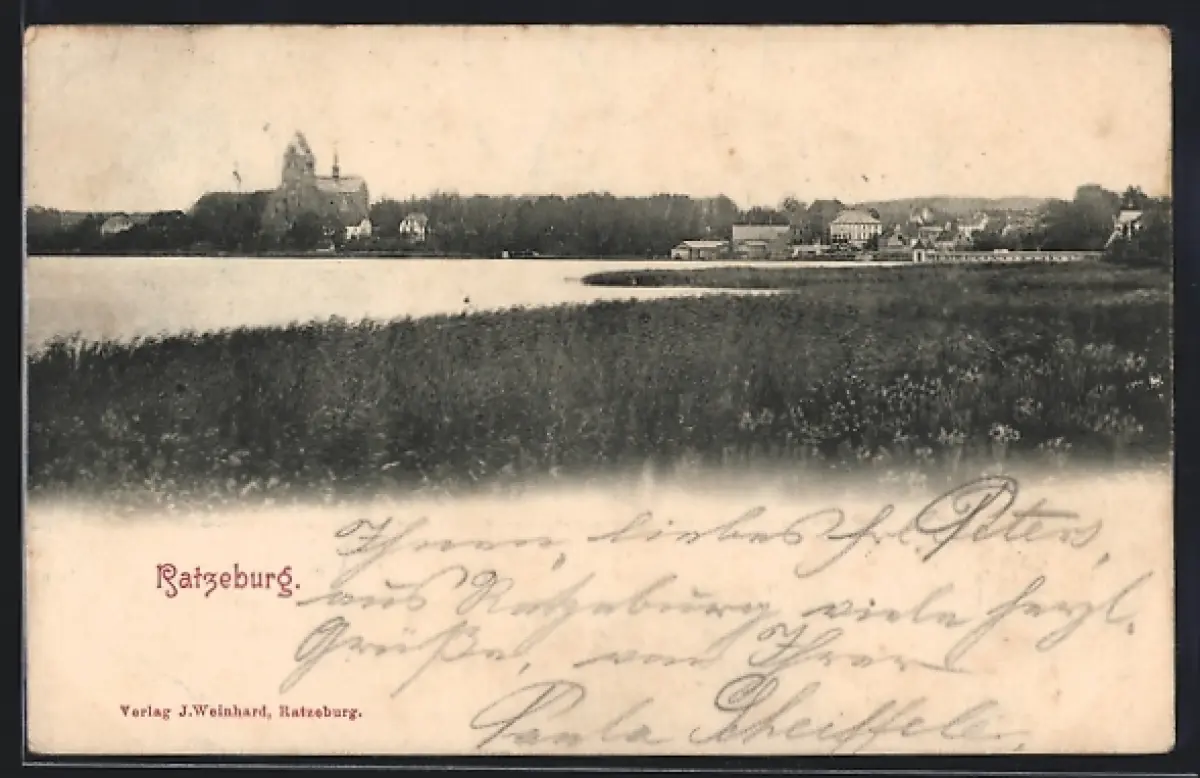 Ihnen, liebes Frl. Peters,
aus Ratzeburg viele herzl.
Grüße, von Ihrer
Paula Scheiffele.
Ratzeburg.
Verlag J. Weinhard, Ratzeburg.